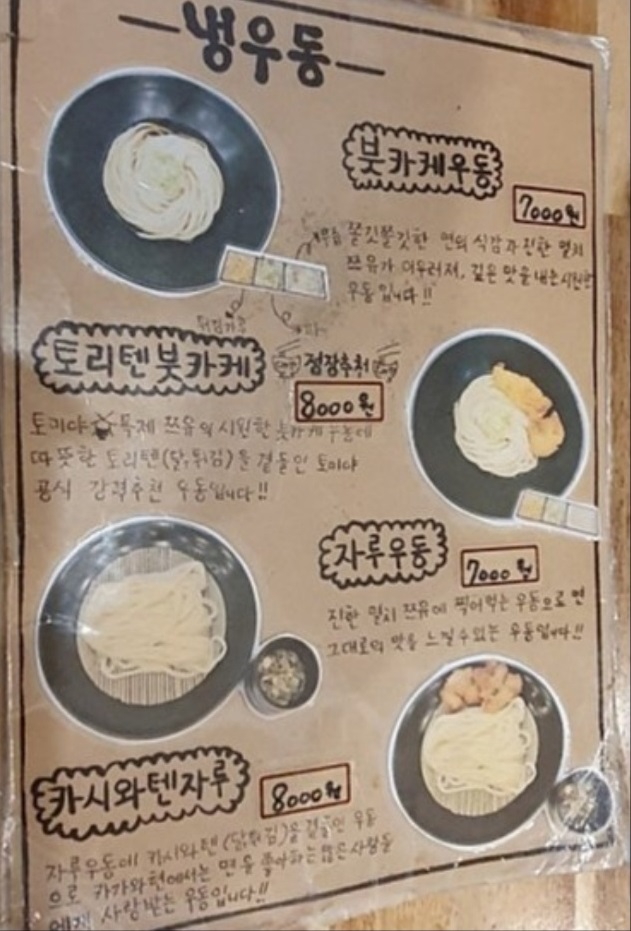 냉우동
붓카케우동
7000원
쫄깃쫄깃한 면의 식감과 진한 멸치
쯔유가 어우러져, 깊은 맛을 내는 시원한
우동입니다!!
튀김가루
파
토리텐붓카케
점장추천
8000원
토미야 특제 쯔유의 시원한 붓카케우동에
따뜻한 토리텐(닭튀김)을 곁들인 토미야
공식 강력추천 우동입니다!!
자루우동
7000원
진한 멸치 쯔유에 찍어먹는 우동으로 면
그대로의 맛을 느낄수있는 우동입니다!!
카시와텐자루
8000원
자루우동에 카시와텐(닭튀김)을 곁들인 우동
으로 카가와현에서는 면을 좋아하는 많은 사람들
에게 사랑받는 우동입니다!!